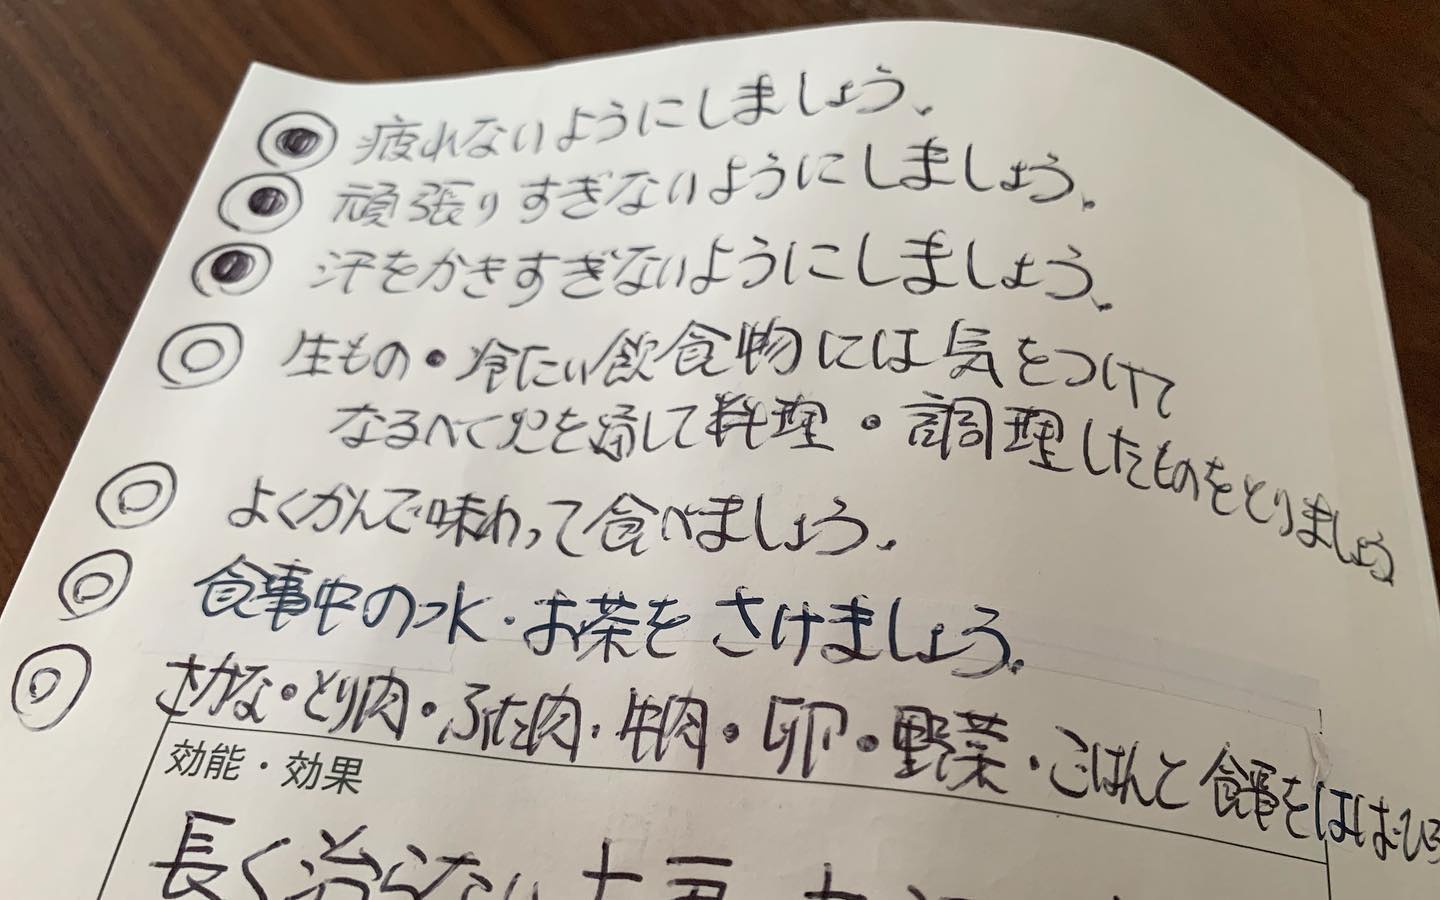 疲れないようにしましょう。
頑張りすぎないようにしましょう。
汗をかきすぎないようにしましょう。
生もの・冷たい飲食物には気をつけて
なるべく火を通して料理・調理したものをとりましょう
よくかんで味わって食べましょう。
食事中の水・お茶をさけましょう。
さかな・とり肉・ぶた肉・牛肉・卵・野菜・ごはんと食事をはばひろ
効能・効果
長く治らない